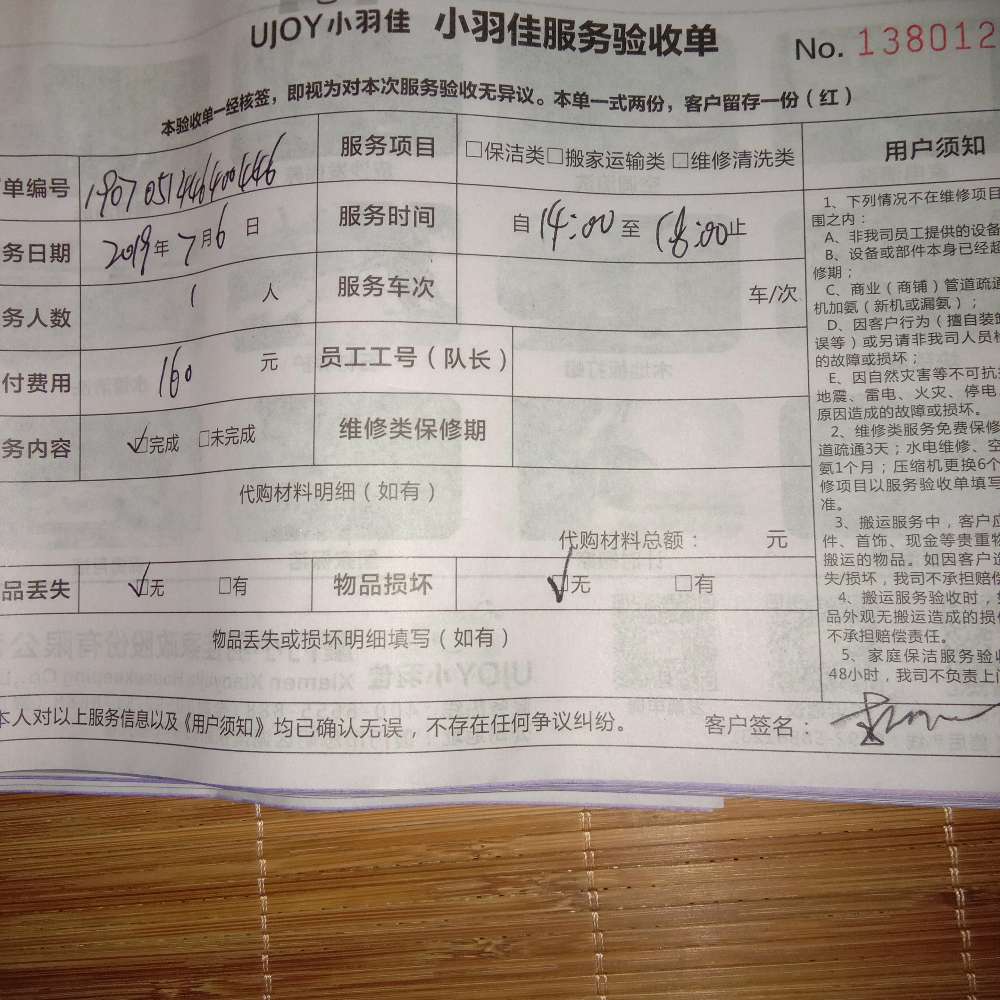 UJOY小羽佳 小羽佳服务验收单 No. 138012
本验收单一经核签，即视为对本次服务验收无异议。本单一式两份，客户留存一份（红）
单编号 1907051446400446 服务项目 □保洁类□搬家运输类 □维修清洗类 用户须知
务日期 2019年7月6日 服务时间 自14:00至18:00止
务人数 1 人 服务车次 车/次
付费用 160 元 员工工号（队长）
务内容 ☑完成 □未完成 维修类保修期
代购材料明细（如有）
代购材料总额： 元
品丢失 ☑无 □有 物品损坏 ☑无 □有
物品丢失或损坏明细填写（如有）
本人对以上服务信息以及《用户须知》均已确认无误，不存在任何争议纠纷。 客户签名：
1、下列情况不在维修项目
围之内：
A、非我司员工提供的设备
B、设备或部件本身已经超
修期；
C、商业（商铺）管道疏通
机加氨（新机或漏氨）；
D、因客户行为（擅自装
误等）或另请非我司人员
的故障或损坏；
E、因自然灾害等不可抗
地震、雷电、火灾、停电
原因造成的故障或损坏。
2、维修类服务免费保修
道疏通3天；水电维修、空
氨1个月；压缩机更换6个
修项目以服务验收单填写
准。
3、搬运服务中，客户应
件、首饰、现金等贵重物
搬运的物品。如因客户
失/损坏，我司不承担赔偿
4、搬运服务验收时，
品外观无搬运造成的损
不承担赔偿责任。
5、家庭保洁服务验收
48小时，我司不负责上